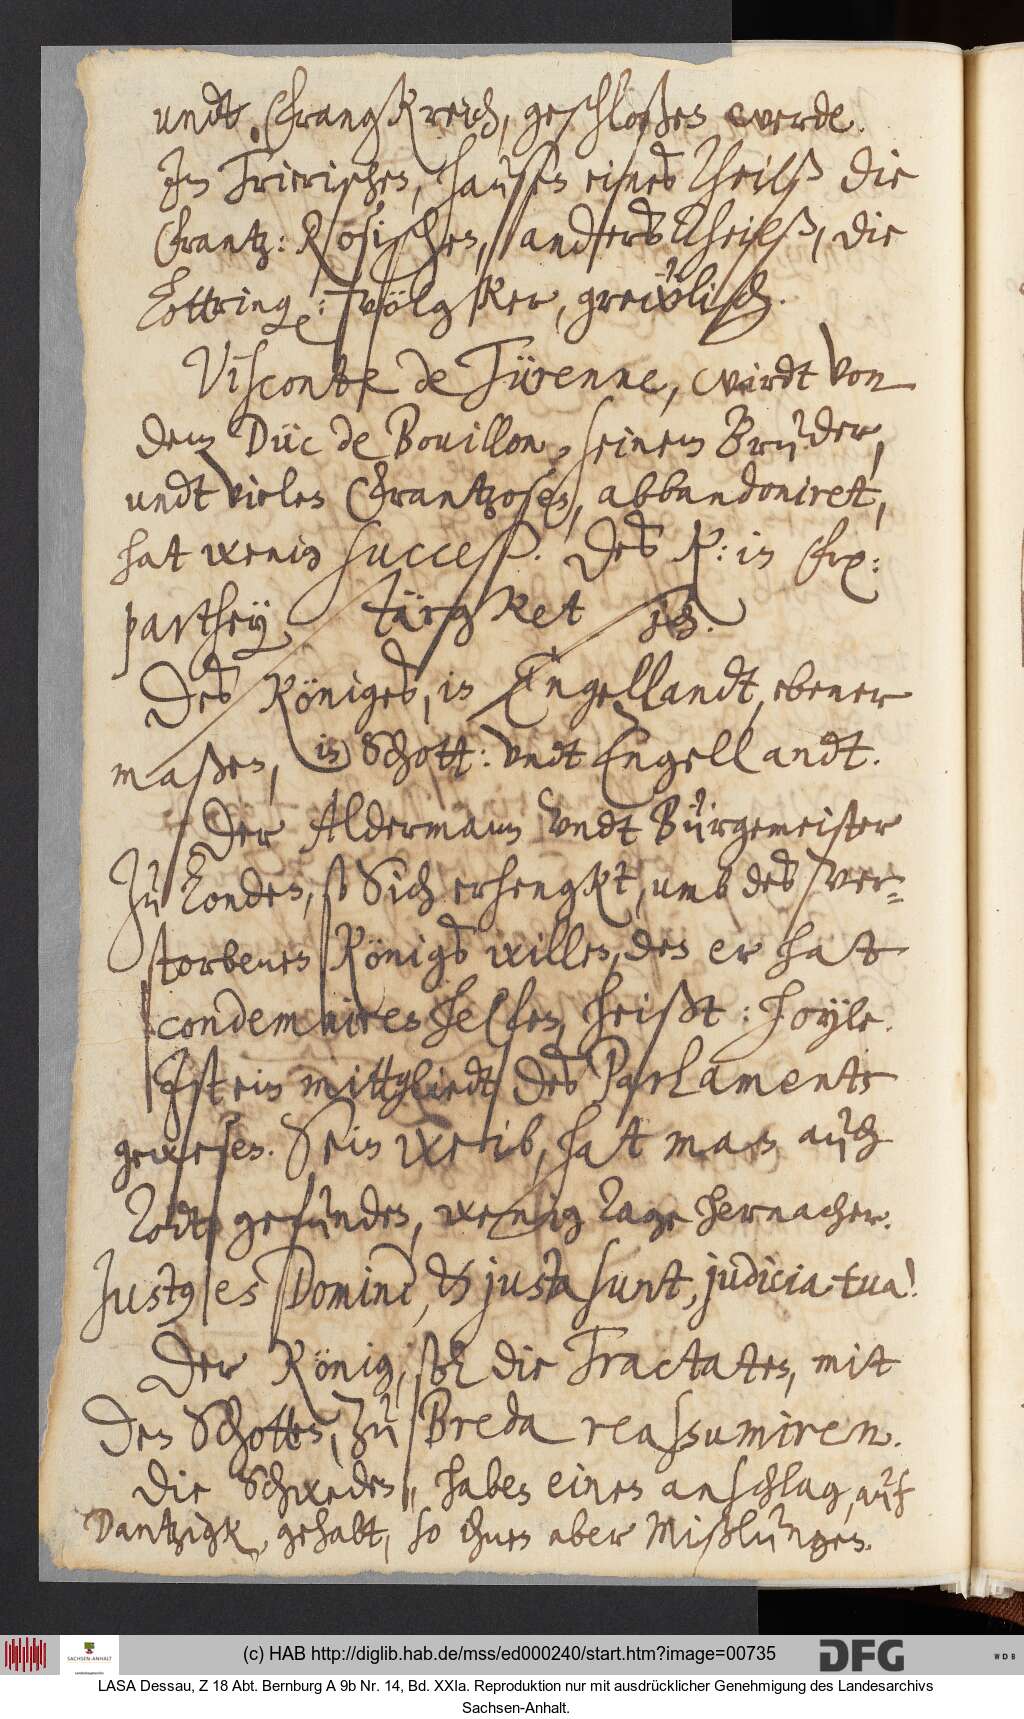 undt Frangkreich, geschloßen werde.
Im Trierischen, hausen eines Theilß die
Frantz: Kosischen, anders Theilß, die
Lottringe: völgker, grewlich.
Visconte de Türenne, wirdt von
dem Düc de Bouillon, seinem Bruder,
undt vielen Frantzosen, abbandoniret,
hat wenig succeß. Des K: in Fr:
parthey, stärgket sich.
Des Königes, in Engellandt, ebener
maßen, in Schott: undt Engellandt.
Der Aldermann undt Bürgemeister
zu Londen, so Sich erhengkt, umb des ver=
storbenen Königs willen, den er hat
condemniren helfen, heißt: Hoyle.
Ist ein mittgliedt des Parlaments
gewesen. Sein weib, hat man auch
Todt gefunden, wenig Tage hernacher.
Justus es Domine, & justa sunt, judicia tua!
Der König, soll die Tractaten, mit
den Schotten, zu Breda reassumiren.
Die Schweden, haben einen anschlag, auf
Dantzigk, gehabt, so ihnen aber mißlungen.
(c) HAB http://diglib.hab.de/mss/ed000240/start.htm?image=00735
SACHSEN-ANHALT
DFG
WDB
LASA Dessau, Z 18 Abt. Bernburg A 9b Nr. 14, Bd. XXIa. Reproduktion nur mit ausdrücklicher Genehmigung des Landesarchivs
Sachsen-Anhalt.